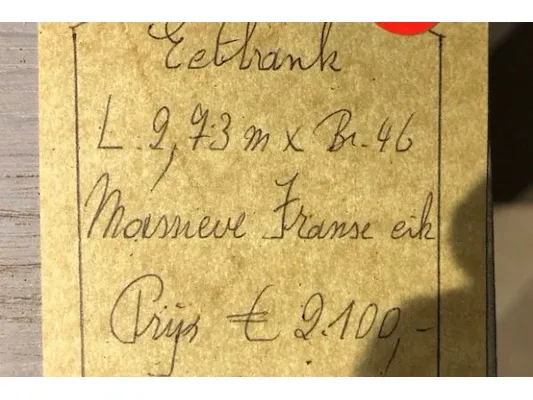 Eetbank
L. 2,73 m x Br. 46
Massieve Franse eik
Prijs € 2.100,-